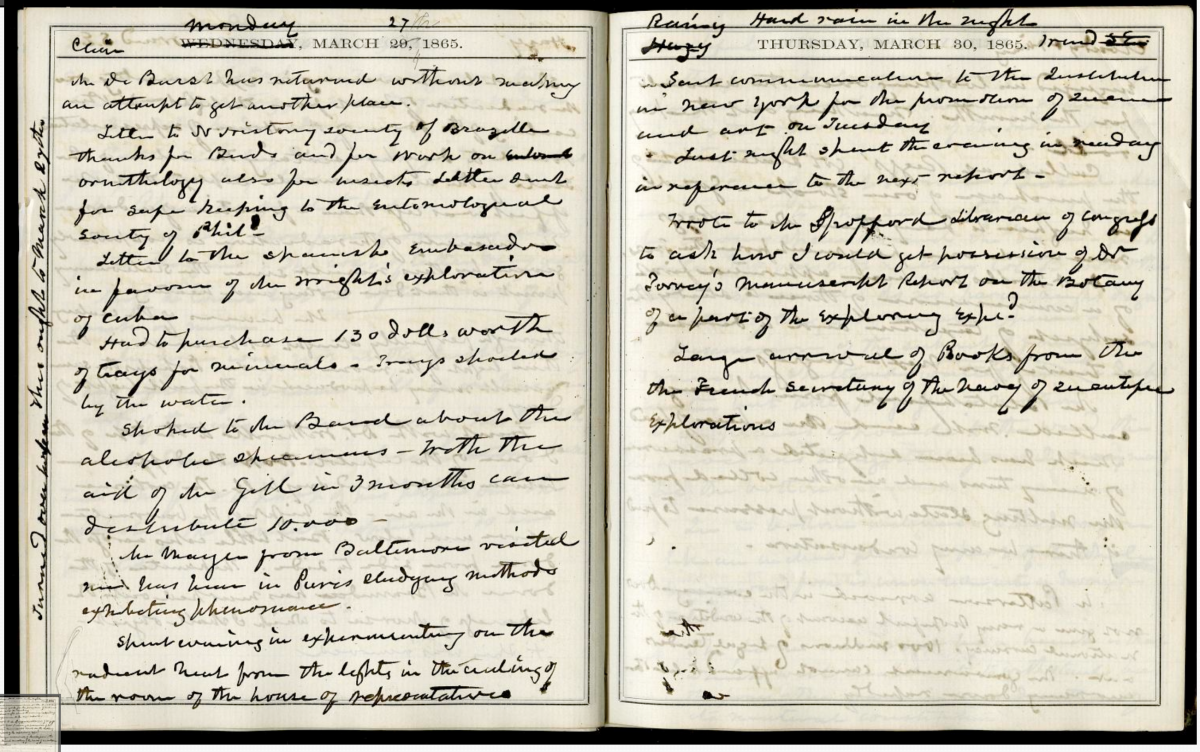 Monday 27
Clear WEDNESDAY, MARCH 29, 1865.
Mr De Burst has returned without making
an attempt to get another place.
Letter to N History society of Brazille
thanks for Birds and for work on
ornithology also for insects Letter sent
for safe keeping to the Entomological
Society of Phil
Letter to the Spanish Embasador
in favour of Mr Wright's exploration
of Cuba
Had to purchase 130 dolls worth
of trays for minerals – Trays spoiled
by the water.
Spoked to Mr Baird about the
alcoholic specimens – With the
aid of Mr Gill in 3 months can
distribute 10.000 –
Mr Mayer from Baltimore visited
me has been in Paris studying methods
exhibiting phenomance.
Spent evening in experimenting on the
radient heat from the lights in the ceiling of
the room of the house of representatives
Turned over two pages this ought to March 27th
Rainy Hard rain in the night
Hazy THURSDAY, MARCH 30, 1865. wind
Sent communication to the Institution
in New York for the promotion of science
and art on Tuesday
Last night spent the evening in reading
in reference to the next report –
Wrote to Mr Spofford Librarian of Congress
to ask how I could get possession of Dr
Torrey's Manuscript Report on the Botany
of a part of the Exploring Expd
Large arrival of Books from the
the French Secretary of the Navy of scientific
Explorations